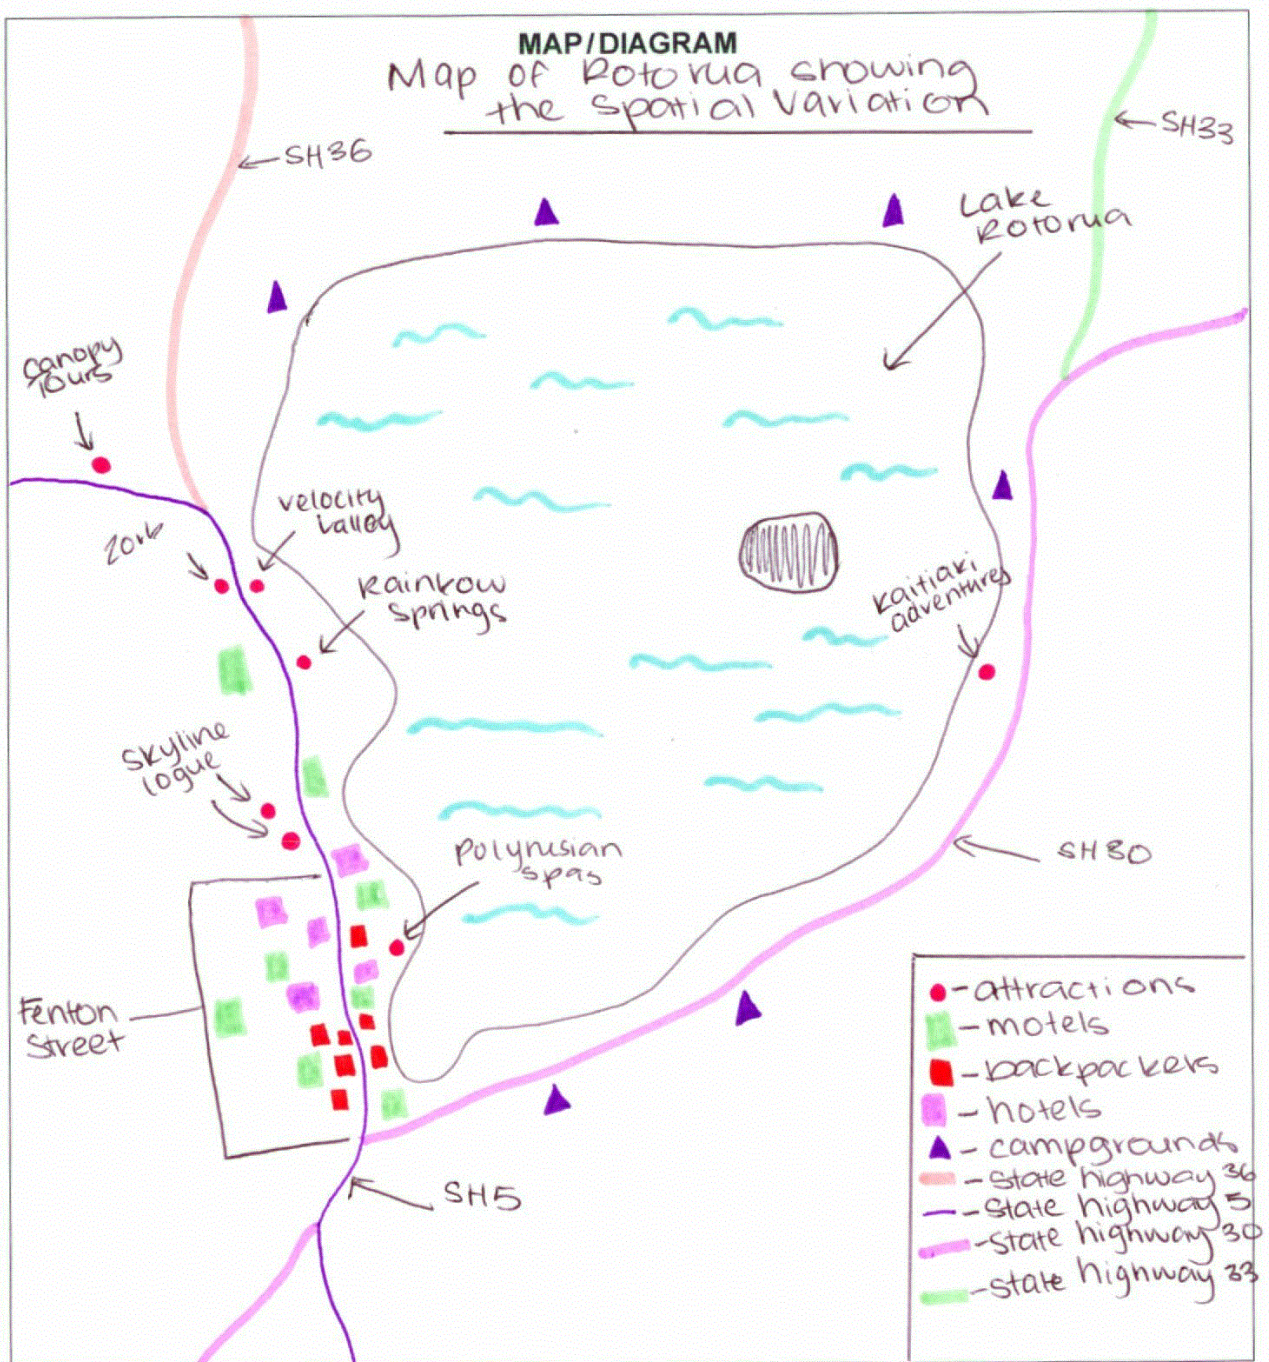 MAP/DIAGRAM
Map of Rotorua showing
the Spatial Variation
SH36
SH33
Lake
Rotorua
canopy
Tours
zorb
velocity
valley
Rainbow
Springs
Kaitiaki
adventures
Skyline
logue
Polynesian
spas
SH30
Fenton
Street
SH5
- attractions
- motels
- backpackers
- hotels
- campgrounds
- State highway 36
- State highway 5
- State highway 30
- State highway 33